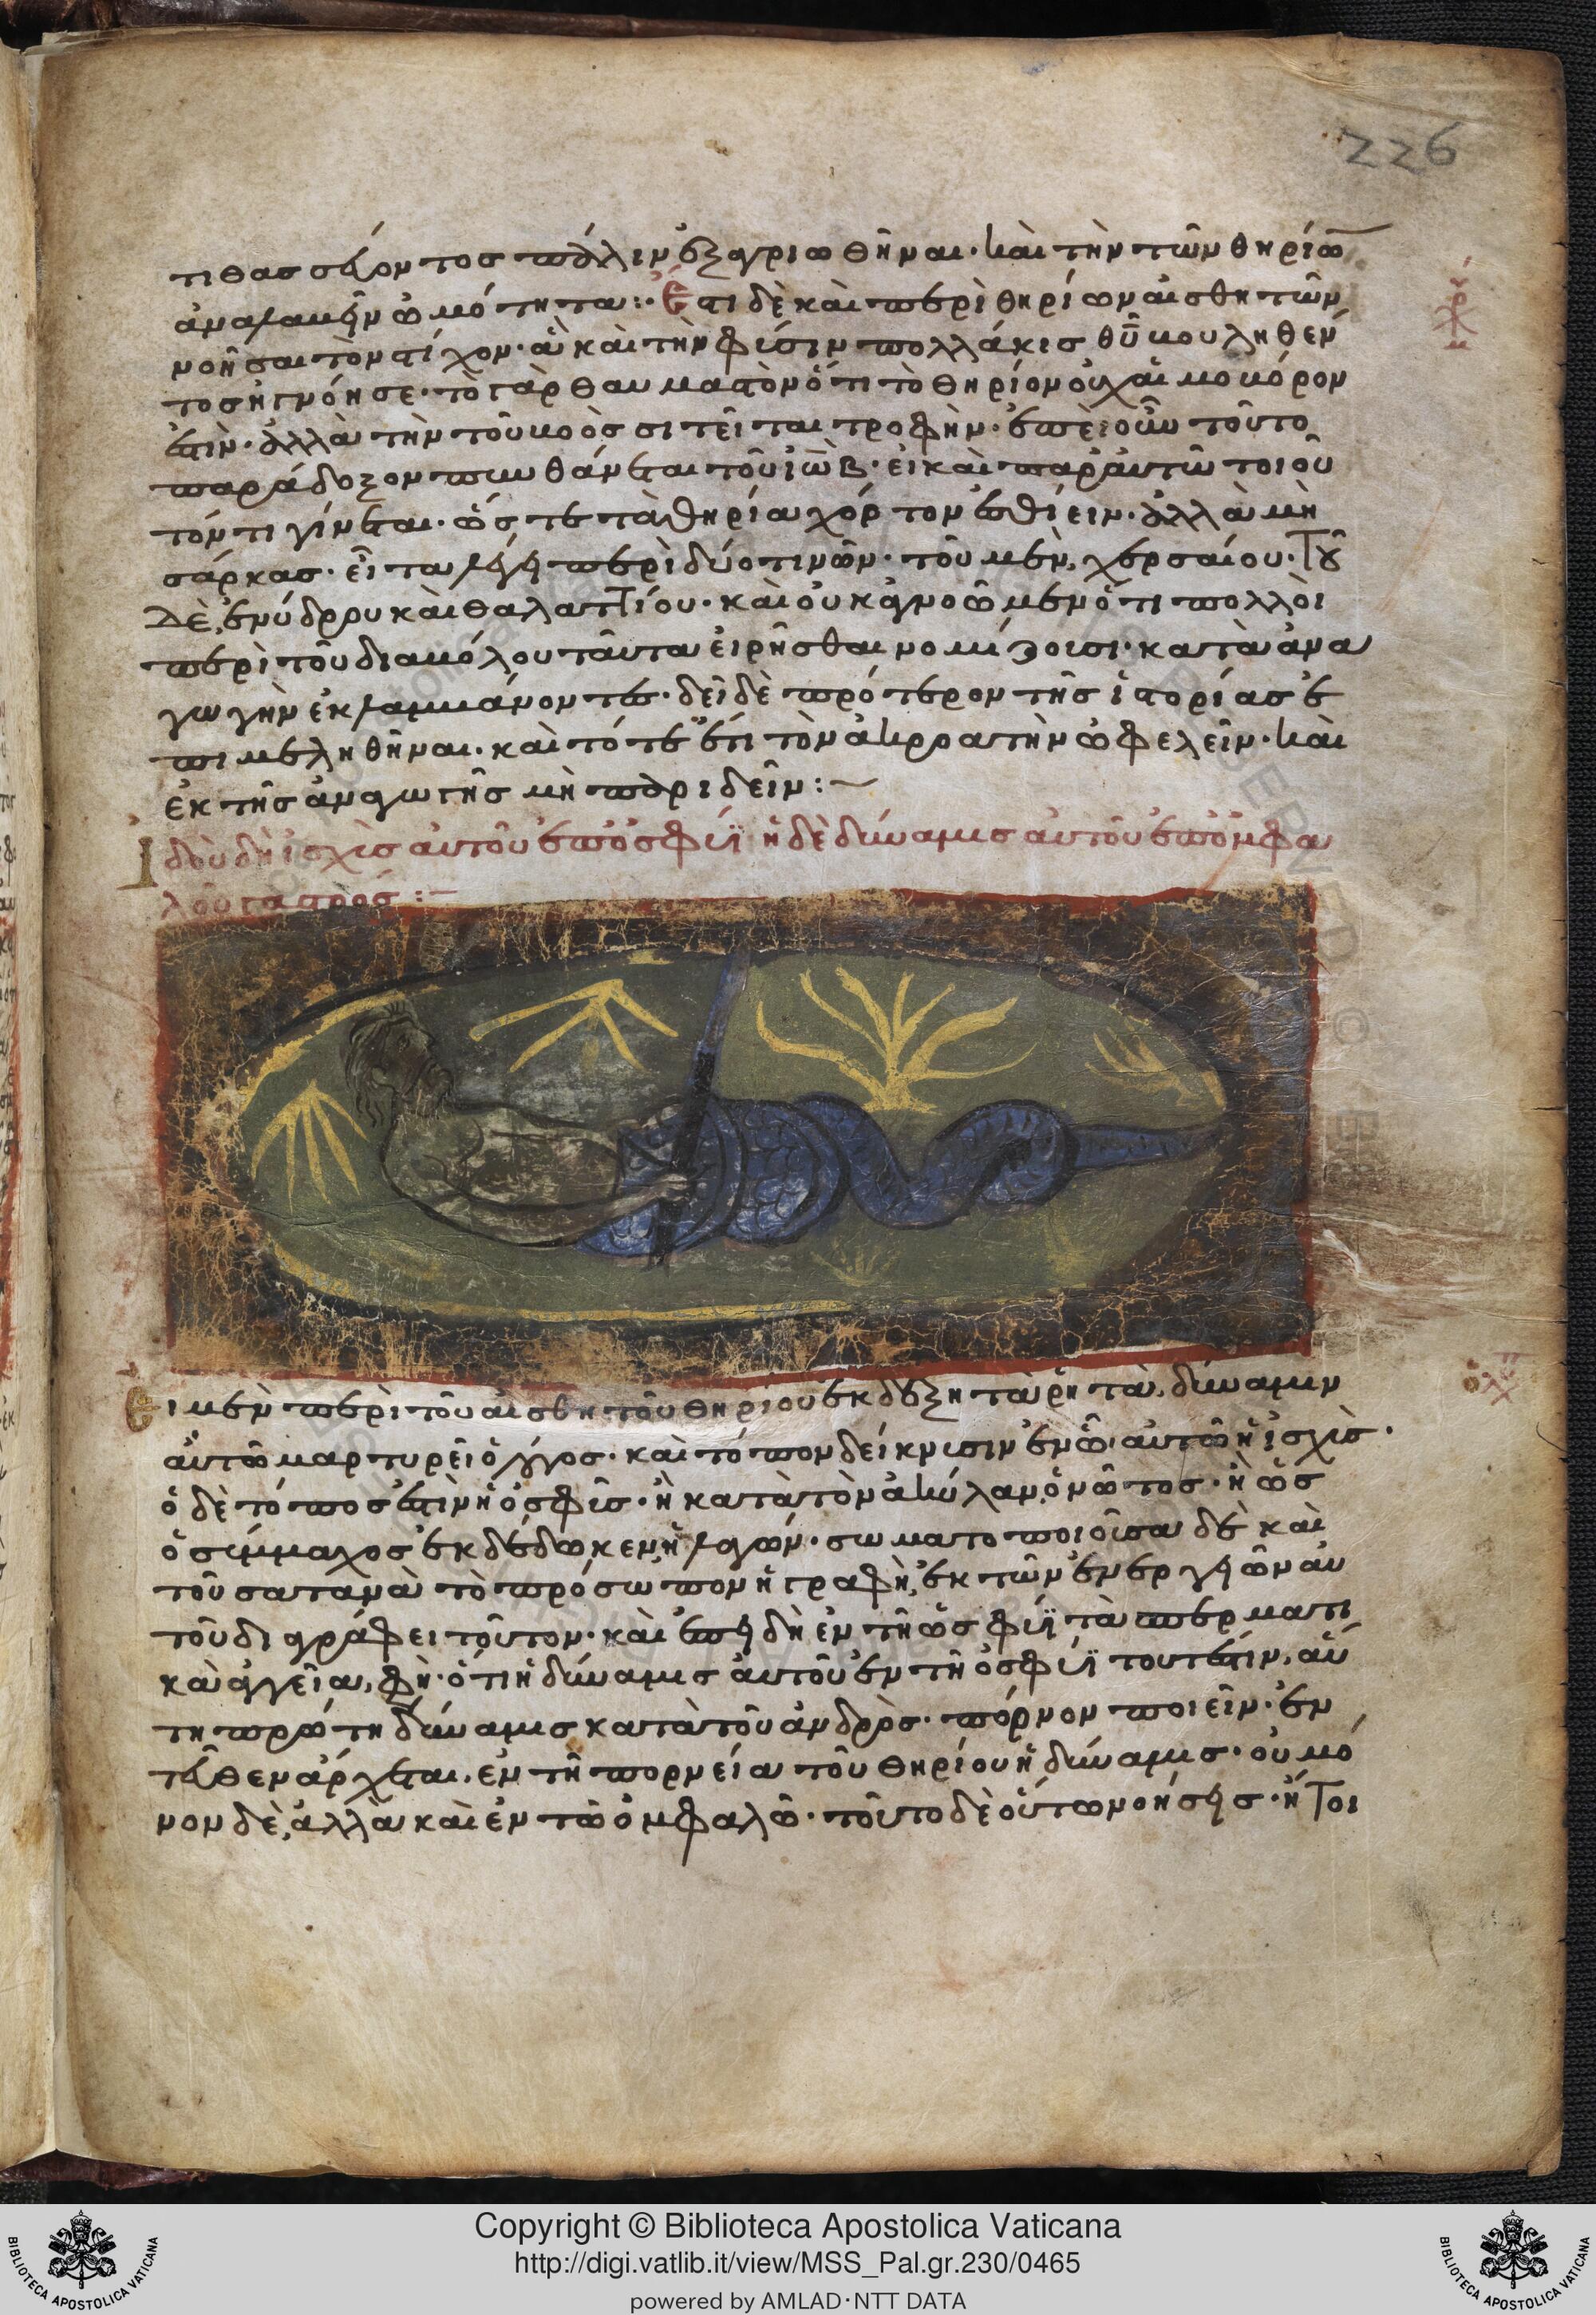 226
τιθασσεύοντος πάλιν ἐξαγριωθῆναι· καὶ τὴν τῶν θηρίω
ἀναλαβεῖν ὠμότητα:· Ἔτι δὲ καὶ περὶ θηρίων αἰσθητῶν
νοῆσαι τὸν στίχον· ἃ καὶ τὴν φύσιν πολλάκις θῦ βουληθέν
τος ἠγνόησε· τὸ γὰρ θαυμαστὸν ὅτι τὸ θηρίον οὐχ αἱμοβόρον
ἐστὶν· ἀλλὰ τὴν τοῦ βοὸς σιτεῖται τροφὴν· ἐπεὶ οὖν τοῦτο
παράδοξον πυνθάνεται τοῦ ἰὼβ· εἰ καὶ παρ' αὐτῶ τοιοῦ
τόν τι γίνεται· ὥστε τὰ θηρία χόρτον ἐσθίειν· ἀλλὰ μὴ
σάρκας· εἶτα λέγει περὶ δύο τινῶν· τοῦ μὲν, χερσαίου· τοῦ
δὲ, ἐνύδρου καὶ θαλαττίου· καὶ οὐκ ἀγνοῶ μὲν ὅτι πολλοὶ
περὶ τοῦ διαβόλου ταῦτα εἰρῆσθαι νομίζουσι· κατὰ ἀνα
γωγὴν ἐκλαμβάνοντες· δεῖ δὲ πρότερον τῆς ἱστορίας ἐ
πιμεληθῆναι· καὶ τότε ἔτι τὸν ἀκροατὴν ὠφελεῖν· καὶ
ἐκ τῆς ἀναγωγῆς μὴ παριδεῖν:
Ἰδοὺ δὴ ἰσχὺς αὐτοῦ ἐπ' ὀσφύϊ ἡ δὲ δύναμις αὐτοῦ ἐπ' ὀμφα
λοῦ γαστρός:
Εἰ μὲν περὶ τοῦ αἰσθητοῦ θηρίου ἐκδέξη τὰ ῥητὰ, δύναμιν
αὐτῶ μαρτυρεῖ ὁ λόγος· καὶ τόπον δείκνυσιν ἐν ὧ αὐτῶ ἡ ἰσχὺς·
ὁ δὲ τόπος ἐστὶν ἡ ὀσφῦς· ἢ κατὰ τὸν ἀκύλαν, ὁ νῶτος· ἢ ὡς
ὁ σύμμαχος ἐκδέδωκεν, ἡ λαγών· σωματοποιοῦσα δὲ καὶ
τοῦ σατανᾶ τὸ πρόσωπον ἡ γραφὴ, ἐκ τῶν ἐνεργειῶν αὐ
τοῦ διαγράφει τοῦτον· καὶ ἐπειδὴ ἐν τῆ ὀσφύϊ τὰ σπερματι
κὰ ἀγγεῖα, φη· ὅτι ἡ δύναμις αὐτοῦ ἐν τῆ ὀσφύϊ τουτέστιν, αὕ
τη πρώτη δύναμις κατὰ τοῦ ἀνδρὸς· πόρνον ποιεῖν· ἐν
τεῦθεν ἄρχεται, ἐν τῆ πορνεία τοῦ θηρίου ἡ δύναμις· οὐ μό
νον δὲ, ἀλλὰ καὶ ἐν τῶ ὀμφαλῶ· τοῦτο δὲ οὕτω νοήσεις· ἤτοι
Copyright © Biblioteca Apostolica Vaticana
http://digi.vatlib.it/view/MSS_Pal.gr.230/0465
powered by AMLAD·NTT DATA
BIBLIOTECA APOSTOLICA VATICANA
BIBLIOTECA APOSTOLICA VATICANA